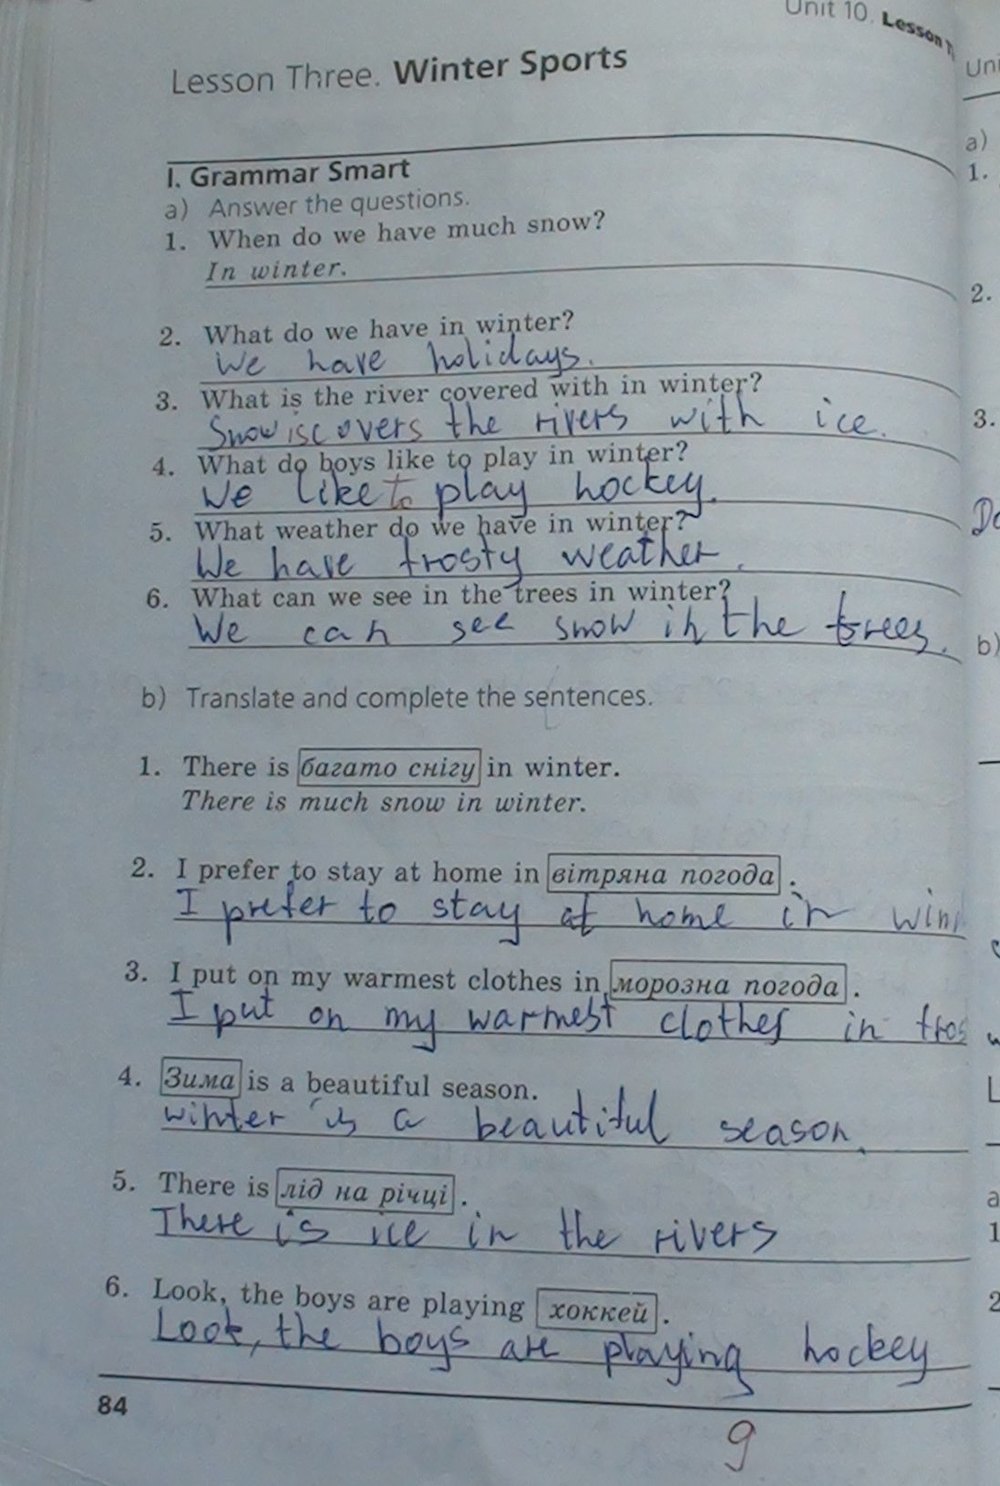 Unit 10. Lesson
Lesson Three. Winter Sports
I. Grammar Smart
a) Answer the questions.
1. When do we have much snow?
In winter.
2. What do we have in winter?
We have holidays.
3. What is the river covered with in winter?
Snow is covers the rivers with ice.
4. What do boys like to play in winter?
We like to play hockey.
5. What weather do we have in winter?
We have frosty weather.
6. What can we see in the trees in winter?
We can see snow in the trees.
b) Translate and complete the sentences.
1. There is багато снігу in winter.
There is much snow in winter.
2. I prefer to stay at home in вітряна погода.
I prefer to stay at home in win
3. I put on my warmest clothes in морозна погода.
I put on my warmest clothes in fros
4. Зима is a beautiful season.
winter is a beautiful season.
5. There is лід на річці.
There is ice in the rivers
6. Look, the boys are playing хоккей.
Look, the boys are playing hockey
84
9
Un
a)
1.
2.
3.
b)
a
1
2